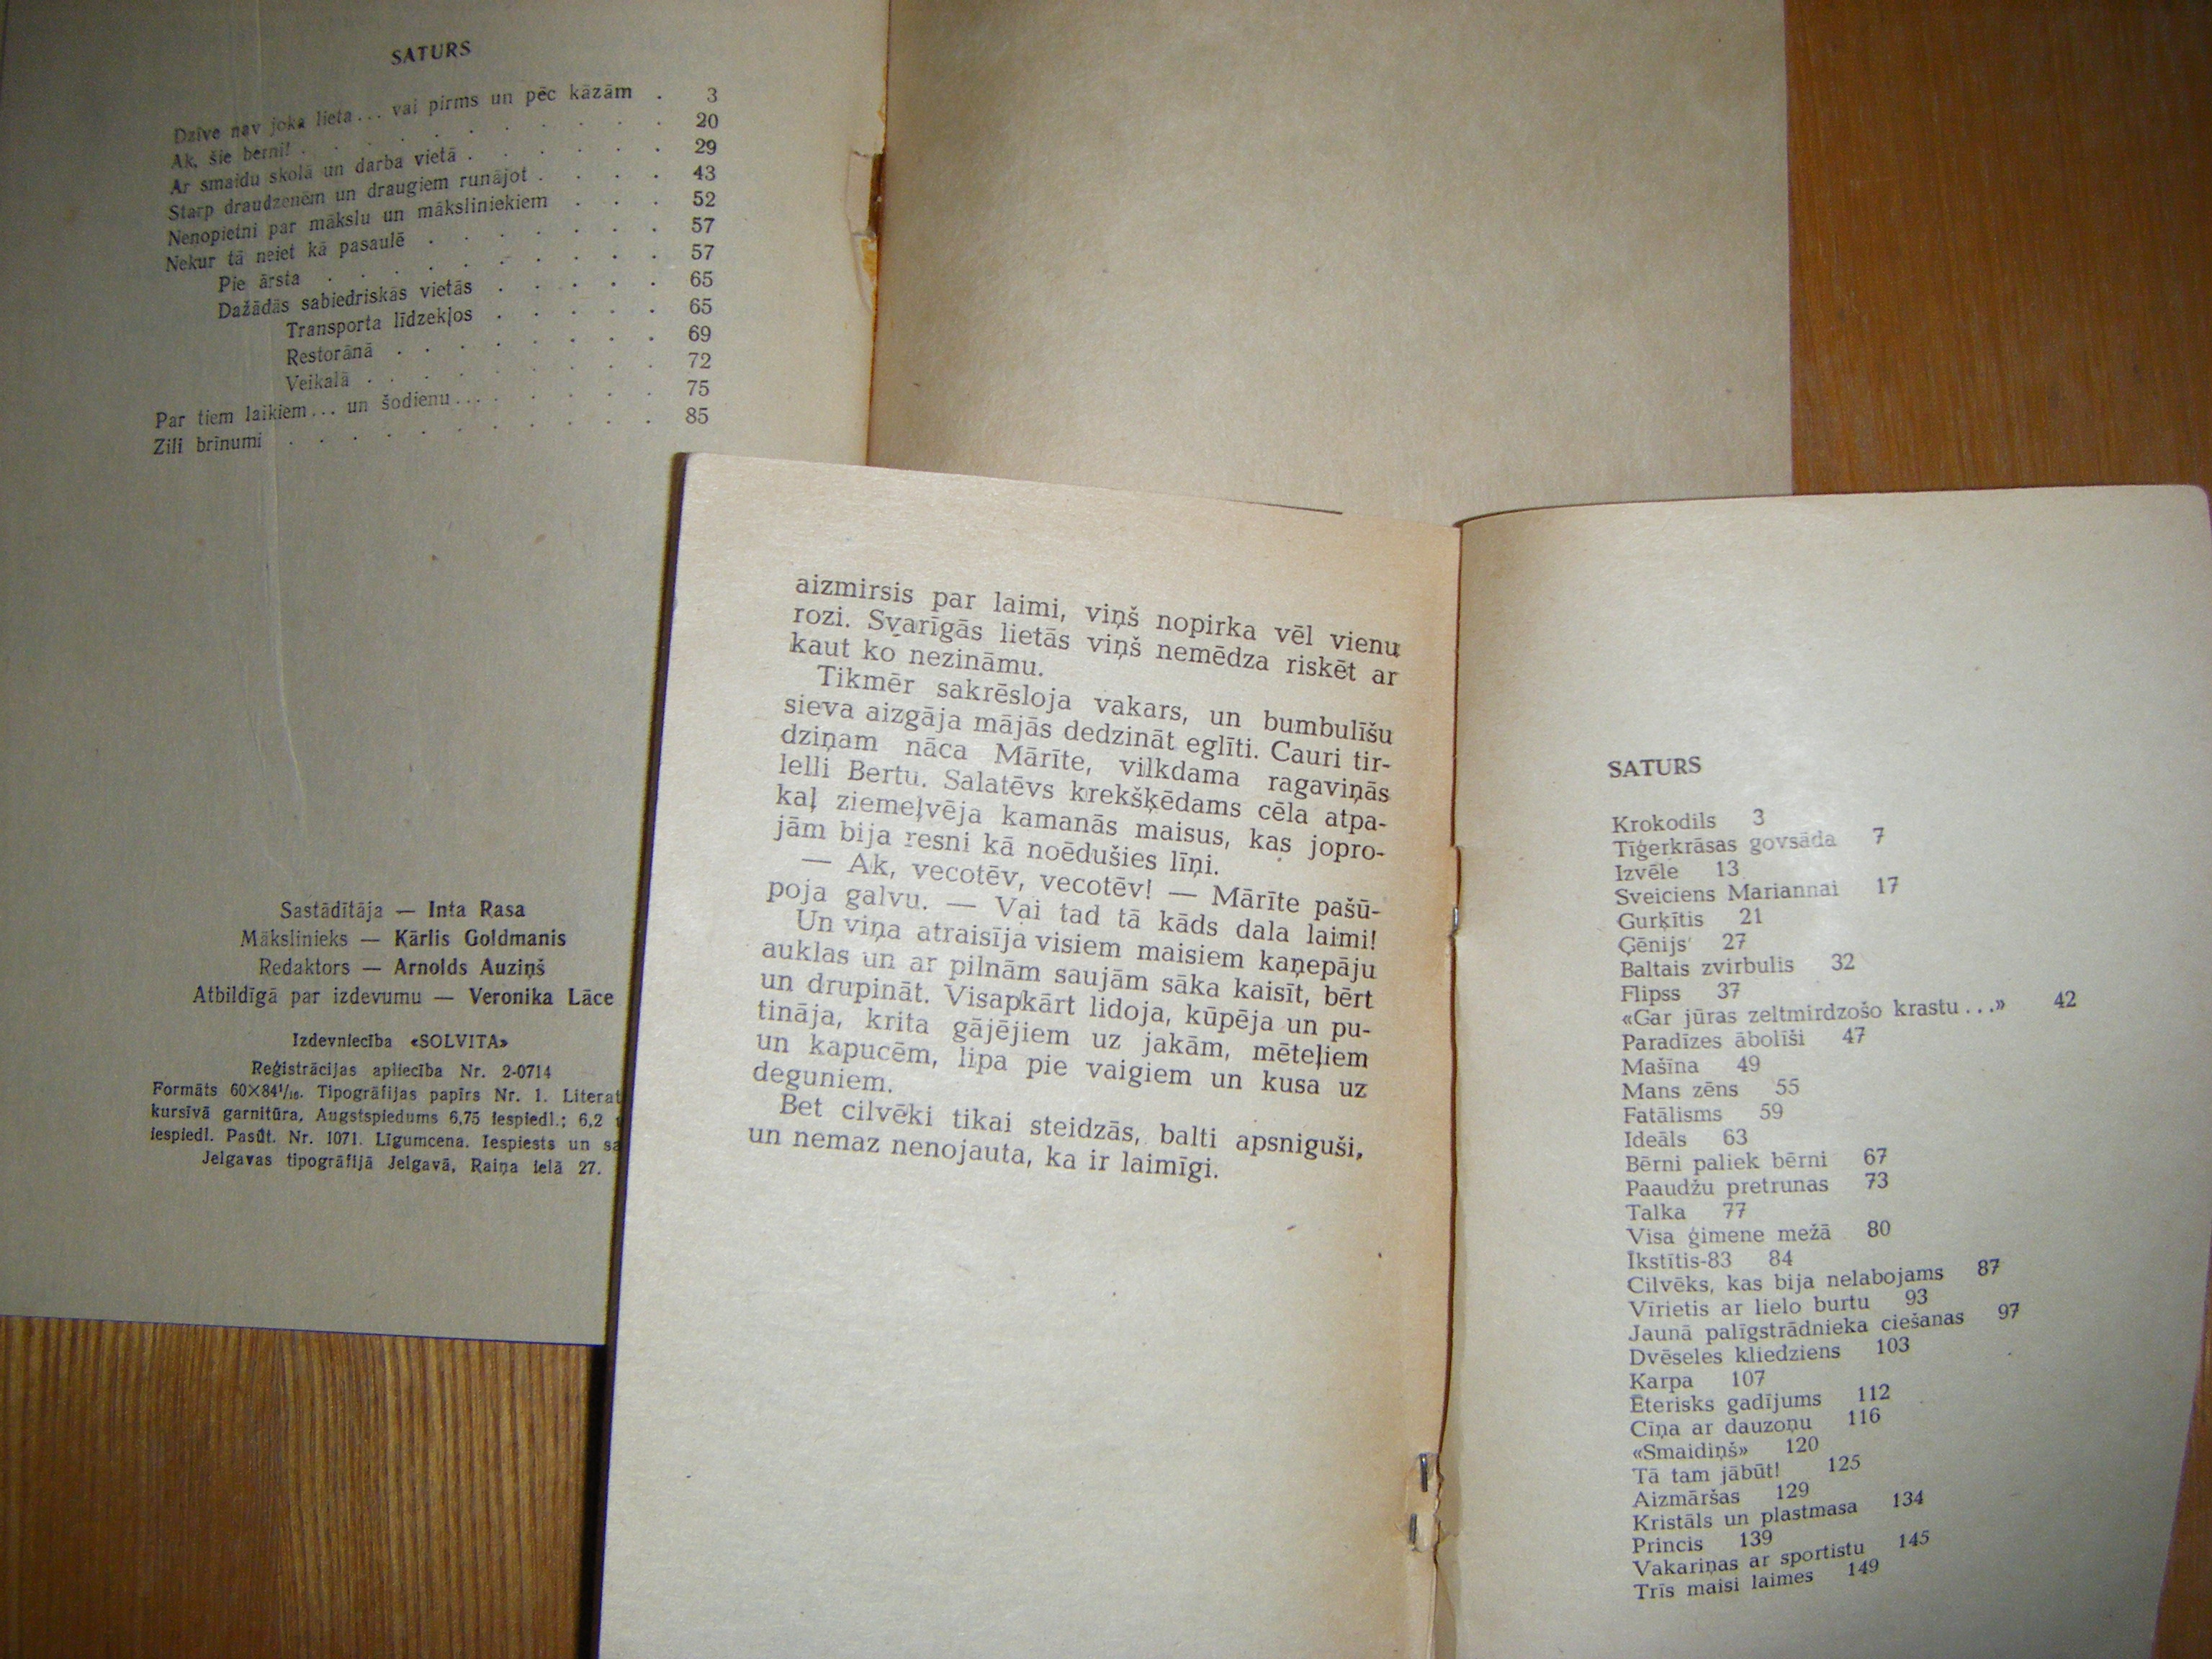 SATURS
Dzīve nav joka lieta... vai pirms un pēc kāzām . 3
Ak, šie bērni! . . . . . . . . . 20
Ar smaidu skolā un darba vietā . . . . . . 29
Starp draudzenēm un draugiem runājot . . . . 43
Nenopietni par mākslu un māksliniekiem . . . 52
Nekur tā neiet kā pasaulē . . . . . . . 57
Pie ārsta . . . . . . . . . 57
Dažādās sabiedriskās vietās . . . . . 65
Transporta līdzekļos . . . . . 65
Restorānā . . . . . . . . 69
Veikalā . . . . . . . . . 72
Par tiem laikiem... un šodienu... . . . . . 75
Zili brīnumi . . . . . . . . . . . 85
Sastādītāja — Inta Rasa
Mākslinieks — Kārlis Goldmanis
Redaktors — Arnolds Auziņš
Atbildīgā par izdevumu — Veronika Lāce
Izdevniecība «SOLVITA»
Reģistrācijas apliecība Nr. 2-0714
Formāts 60×84¹/₁₆. Tipogrāfijas papīrs Nr. 1. Literat
kursīvā garnitūra. Augstspiedums 6,75 iespiedl.; 6,2
iespiedl. Pasūt. Nr. 1071. Līgumcena. Iespiests un sa
Jelgavas tipogrāfijā Jelgavā, Raiņa ielā 27.
aizmirsis par laimi, viņš nopirka vēl vienu
rozi. Svarīgās lietās viņš nemēdza riskēt ar
kaut ko nezināmu.
Tikmēr sakrēsloja vakars, un bumbulīšu
sieva aizgāja mājās dedzināt eglīti. Cauri tir-
dziņam nāca Mārīte, vilkdama ragaviņās
lelli Bertu. Salatēvs krekšķēdams cēla atpa-
kaļ ziemeļvēja kamanās maisus, kas jopro-
jām bija resni kā noēdušies līņi.
— Ak, vecotēv, vecotēv! — Mārīte pašū-
poja galvu. — Vai tad tā kāds dala laimi!
Un viņa atraisīja visiem maisiem kaņepāju
auklas un ar pilnām saujām sāka kaisīt, bērt
un drupināt. Visapkārt lidoja, kūpēja un pu-
tināja, krita gājējiem uz jakām, mēteļiem
un kapucēm, lipa pie vaigiem un kusa uz
deguniem.
Bet cilvēki tikai steidzās, balti apsniguši,
un nemaz nenojauta, ka ir laimīgi.
SATURS
Krokodils 3
Tīģerkrāsas govsāda 7
Izvēle 13
Sveiciens Mariannai 17
Gurķītis 21
Ģēnijs 27
Baltais zvirbulis 32
Flipss 37
«Gar jūras zeltmirdzošo krastu...» 42
Paradīzes āboliši 47
Mašīna 49
Mans zēns 55
Fatālisms 59
Ideāls 63
Bērni paliek bērni 67
Paaudžu pretrunas 73
Talka 77
Visa ģimene mežā 80
Īkstītis-83 84
Cilvēks, kas bija nelabojams 87
Vīrietis ar lielo burtu 93
Jaunā palīgstrādnieka ciešanas 97
Dvēseles kliedziens 103
Karpa 107
Ēterisks gadījums 112
Cīņa ar dauzoņu 116
«Smaidiņš» 120
Tā tam jābūt! 125
Aizmāršas 129
Kristāls un plastmasa 134
Princis 139
Vakariņas ar sportistu 145
Trīs maisi laimes 149